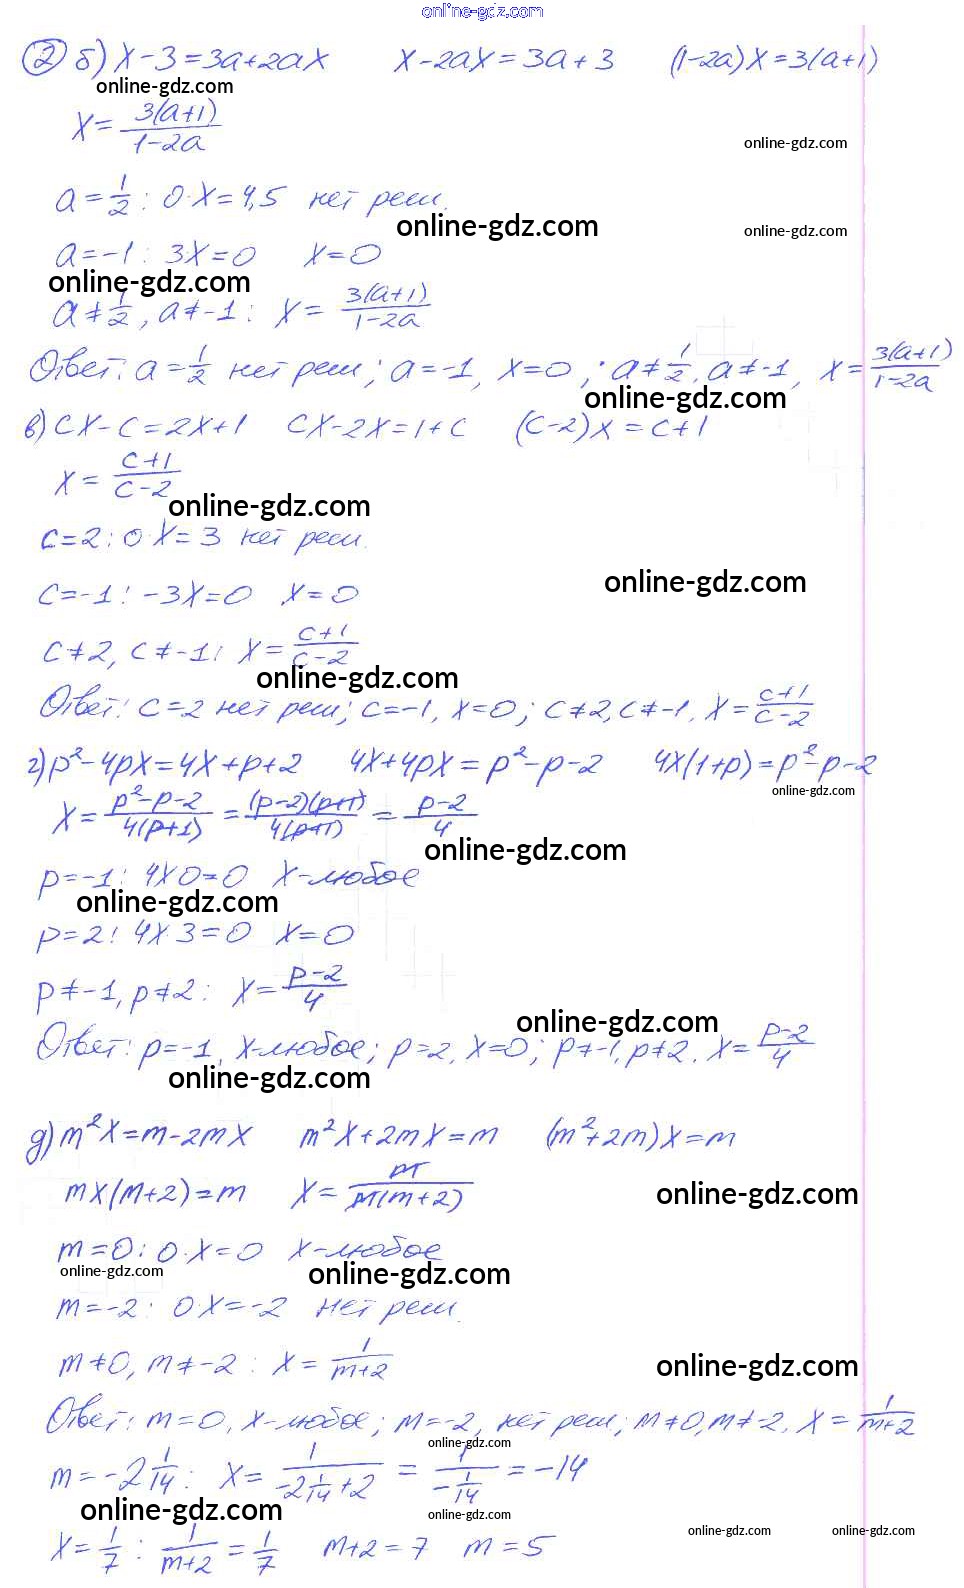 online-gdz.com
② б) x-3=3a+2ax   x-2ax=3a+3   (1-2a)x=3(a+1)
online-gdz.com
x = 3(a+1)/(1-2a)
online-gdz.com
a=1/2: 0·x=4,5 нет реш.
online-gdz.com online-gdz.com
a=-1: 3x=0   x=0
online-gdz.com
a≠1/2, a≠-1: x = 3(a+1)/(1-2a)
Ответ: a=1/2 нет реш; a=-1, x=0; a≠1/2, a≠-1, x=3(a+1)/(1-2a)
online-gdz.com
в) cx-c=2x+1   cx-2x=1+c   (c-2)x=c+1
x = (c+1)/(c-2)
online-gdz.com
c=2: 0·x=3 нет реш.
online-gdz.com
c=-1: -3x=0   x=0
c≠2, c≠-1: x=(c+1)/(c-2)
online-gdz.com
Ответ: c=2 нет реш; c=-1, x=0; c≠2, c≠-1, x=(c+1)/(c-2)
г) p²-4px=4x+p+2   4x+4px=p²-p-2   4x(1+p)=p²-p-2
online-gdz.com
x = (p²-p-2)/(4(p+1)) = (p-2)(p+1)/(4(p+1)) = (p-2)/4
online-gdz.com
p=-1: 4x0=0   x-любое
online-gdz.com
p=2: 4x·3=0   x=0
p≠-1, p≠2: x=(p-2)/4
online-gdz.com
Ответ: p=-1, x-любое; p=2, x=0; p≠-1, p≠2, x=(p-2)/4
online-gdz.com
д) m²x=m-2mx   m²x+2mx=m   (m²+2m)x=m
mx(m+2)=m   x = m/(m(m+2))
online-gdz.com
m=0: 0·x=0   x-любое
online-gdz.com online-gdz.com
m=-2: 0·x=-2   нет реш.
m≠0, m≠-2: x = 1/(m+2)
online-gdz.com
Ответ: m=0, x-любое; m=-2, нет реш; m≠0, m≠-2, x=1/(m+2)
online-gdz.com
m=-2 1/14: x = 1/(-2 1/14+2) = 1/(-1/14) = -14
online-gdz.com online-gdz.com
online-gdz.com online-gdz.com
x=1/7: 1/(m+2)=1/7   m+2=7   m=5